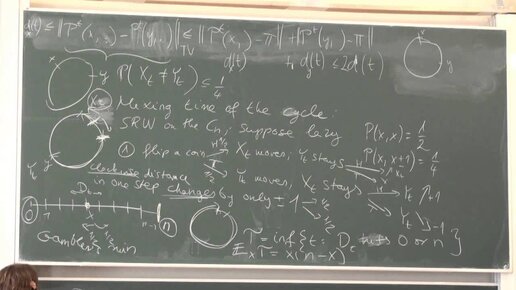 d(t) ≤ ‖P^t(x,·) - P^t(y,·)‖_TV ≤ ‖P^t(x,·) - π‖ + ‖P^t(y,·) - π‖
d̄(t) ≤ 2d(t)
x y P(X_t ≠ Y_t) ≤ 1/4
x y
Mixing time of the cycle:
SRW on the C_n, suppose lazy P(x,x) = 1/2
P(x,x+1) = 1/4
① flip a coin H 1/2 X_t moves, Y_t stays
T 1/2 Y_t moves, X_t stays H Y_t +1
T Y_t -1
clockwise distance
in one step changes by only ±1 1/2 1/2
D_t
0 1 x n-1 n
1/2 1/2
Gambler's ruin
T = inf{t: D_t hits 0 or n}
E_x T = x(n-x)